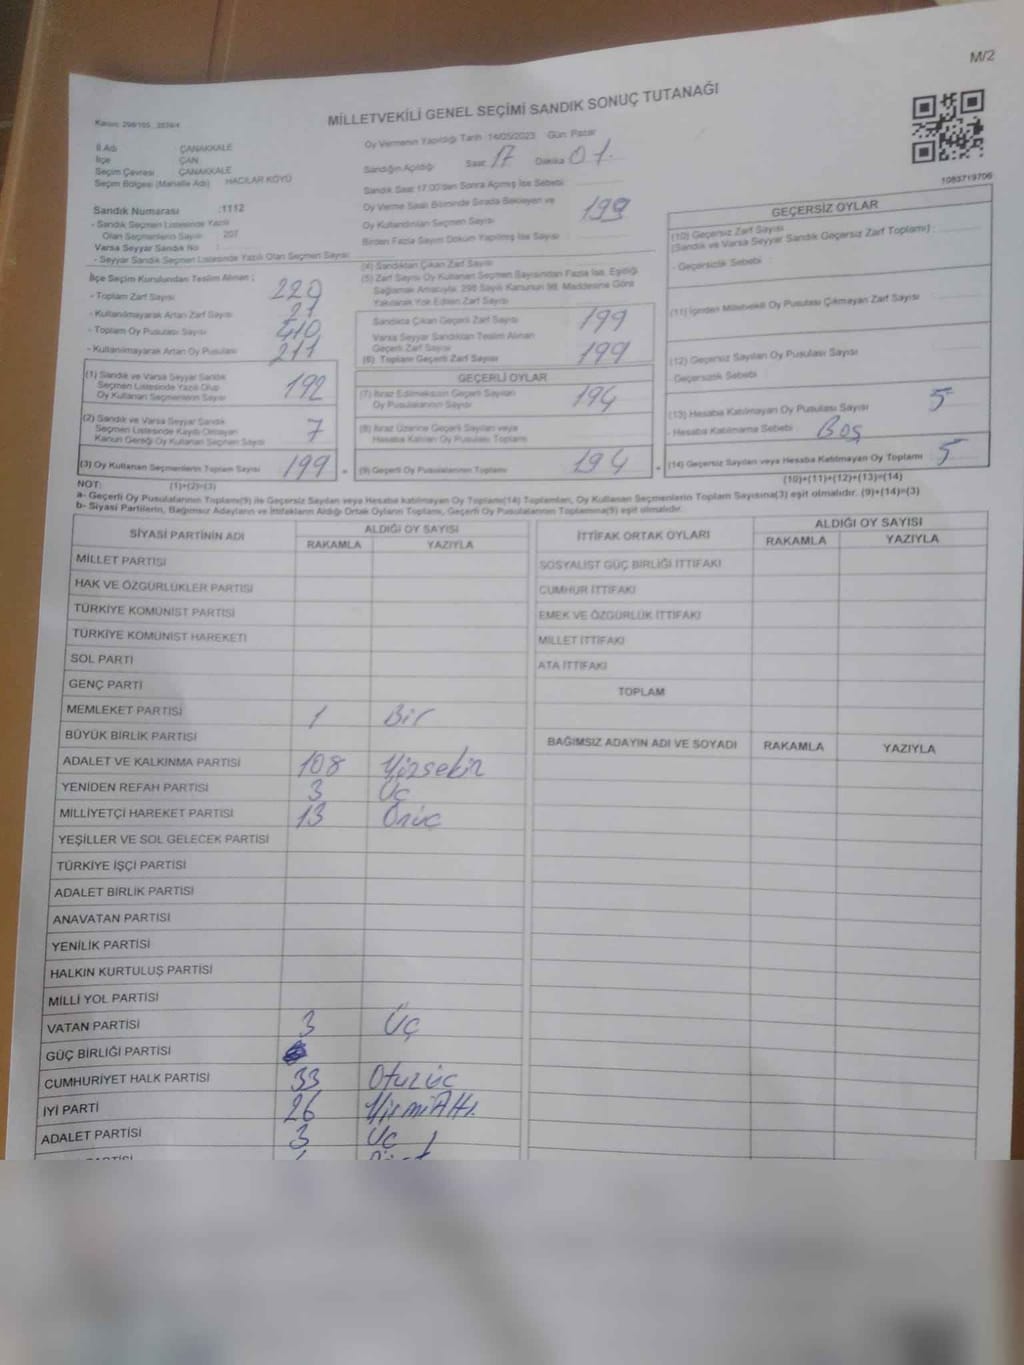 M/2
MİLLETVEKİLİ GENEL SEÇİMİ SANDIK SONUÇ TUTANAĞI
1083719706
İl Adı : ÇANAKKALE
İlçe : ÇAN
Seçim Çevresi : ÇANAKKALE
Seçim Bölgesi (Mahalle Adı) : HACILAR KÖYÜ
Oy Vermenin Yapıldığı Tarih :14/05/2023 Gün: Pazar
Sandığın Açıldığı Saat: 17 Dakika 01.
Sandık Saat 17:00'den Sonra Açılmış İse Sebebi :
Oy Verme Saati Bitiminde Sırada Bekleyen ve
Oy Kullandırılan Seçmen Sayısı : 199
Birden Fazla Sayım Döküm Yapılmış İse Sayısı :
Sandık Numarası :1112
- Sandık Seçmen Listesinde Yazılı
Olan Seçmenlerin Sayısı : 207
Varsa Seyyar Sandık No :
- Seyyar Sandık Seçmen Listesinde Yazılı Olan Seçmen Sayısı:
İlçe Seçim Kurulundan Teslim Alınan ;
- Toplam Zarf Sayısı : 220
- Kullanılmayarak Artan Zarf Sayısı : 21
- Toplam Oy Pusulası Sayısı : 410
- Kullanılmayarak Artan Oy Pusulası : 211
(1) Sandık ve Varsa Seyyar Sandık
Seçmen Listesinde Yazılı Olup
Oy Kullanan Seçmenlerin Sayısı : 192
(2) Sandık ve Varsa Seyyar Sandık
Seçmen Listesinde Kaydı Olmayan
Kanun Gereği Oy Kullanan Seçmen Sayısı : 7
(3) Oy Kullanan Seçmenlerin Toplam Sayısı : 199
(1)+(2)=(3)
(4) Sandıktan Çıkan Zarf Sayısı :
(5) Zarf Sayısı Oy Kullanan Seçmen Sayısından Fazla İse, Eşitliği
Sağlamak Amacıyla; 298 Sayılı Kanunun 98. Maddesine Göre
Yakılarak Yok Edilen Zarf Sayısı :
Sandıkta Çıkan Geçerli Zarf Sayısı : 199
Varsa Seyyar Sandıktan Teslim Alınan
Geçerli Zarf Sayısı :
(6) Toplam Geçerli Zarf Sayısı : 199
GEÇERLİ OYLAR
(7) İtiraz Edilmeksizin Geçerli Sayılan
Oy Pusulalarının Sayısı : 194
(8) İtiraz Üzerine Geçerli Sayılan veya
Hesaba Katılan Oy Pusulalarının Toplamı :
(9) Geçerli Oy Pusulalarının Toplamı : 194
GEÇERSİZ OYLAR
(10) Geçersiz Zarf Sayısı
(Sandık ve Varsa Seyyar Sandık Geçersiz Zarf Toplamı) :
- Geçersizlik Sebebi :
(11) İçinden Milletvekili Oy Pusulası Çıkmayan Zarf Sayısı :
(12) Geçersiz Sayılan Oy Pusulası Sayısı :
- Geçersizlik Sebebi :
(13) Hesaba Katılmayan Oy Pusulası Sayısı : 5
- Hesaba Katılmama Sebebi : Boş
(14) Geçersiz Sayılan veya Hesaba Katılmayan Oy Toplamı : 5
(10)+(11)+(12)+(13)=(14)
NOT:
a- Geçerli Oy Pusulalarının Toplamı(9) ile Geçersiz Sayılan veya Hesaba katılmayan Oy Toplamı(14) Toplamları, Oy Kullanan Seçmenlerin Toplam Sayısına(3) eşit olmalıdır. (9)+(14)=(3)
b- Siyasi Partilerin, Bağımsız Adayların ve İttifakların Aldığı Ortak Oyların Toplamı, Geçerli Oy Pusulalarının Toplamına(9) eşit olmalıdır.
SİYASİ PARTİNİN ADI ALDIĞI OY SAYISI
RAKAMLA YAZIYLA
MİLLET PARTİSİ
HAK VE ÖZGÜRLÜKLER PARTİSİ
TÜRKİYE KOMÜNİST PARTİSİ
TÜRKİYE KOMÜNİST HAREKETİ
SOL PARTİ
GENÇ PARTİ
MEMLEKET PARTİSİ 1 Bir
BÜYÜK BİRLİK PARTİSİ
ADALET VE KALKINMA PARTİSİ 108 Yüzsekiz
YENİDEN REFAH PARTİSİ 3 Üç
MİLLİYETÇİ HAREKET PARTİSİ 13 Onüç
YEŞİLLER VE SOL GELECEK PARTİSİ
TÜRKİYE İŞÇİ PARTİSİ
ADALET BİRLİK PARTİSİ
ANAVATAN PARTİSİ
YENİLİK PARTİSİ
HALKIN KURTULUŞ PARTİSİ
MİLLİ YOL PARTİSİ
VATAN PARTİSİ 3 Üç
GÜÇ BİRLİĞİ PARTİSİ
CUMHURİYET HALK PARTİSİ 33 Otuzüç
İYİ PARTİ 26 YirmiAltı
ADALET PARTİSİ 3 Üç
İTTİFAK ORTAK OYLARI ALDIĞI OY SAYISI
RAKAMLA YAZIYLA
SOSYALİST GÜÇ BİRLİĞİ İTTİFAKI
CUMHUR İTTİFAKI
EMEK VE ÖZGÜRLÜK İTTİFAKI
MİLLET İTTİFAKI
ATA İTTİFAKI
TOPLAM
BAĞIMSIZ ADAYIN ADI VE SOYADI RAKAMLA YAZIYLA